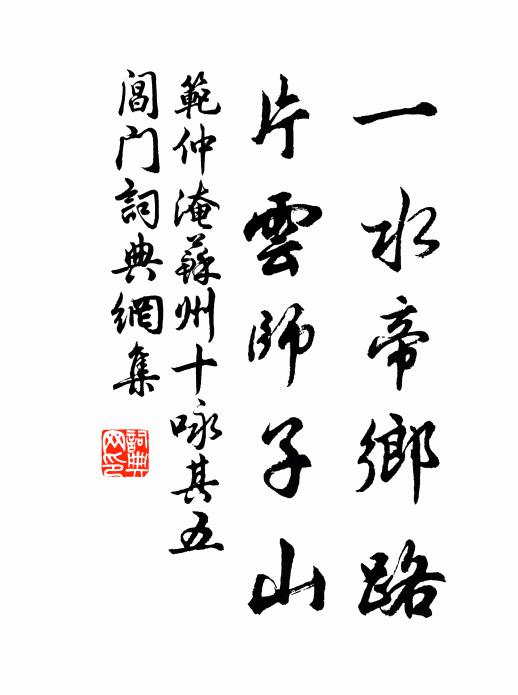 一水帝鄉路
片雲師子山
範仲淹蘇州十咏其五
閶门詞典網集
詞典网印